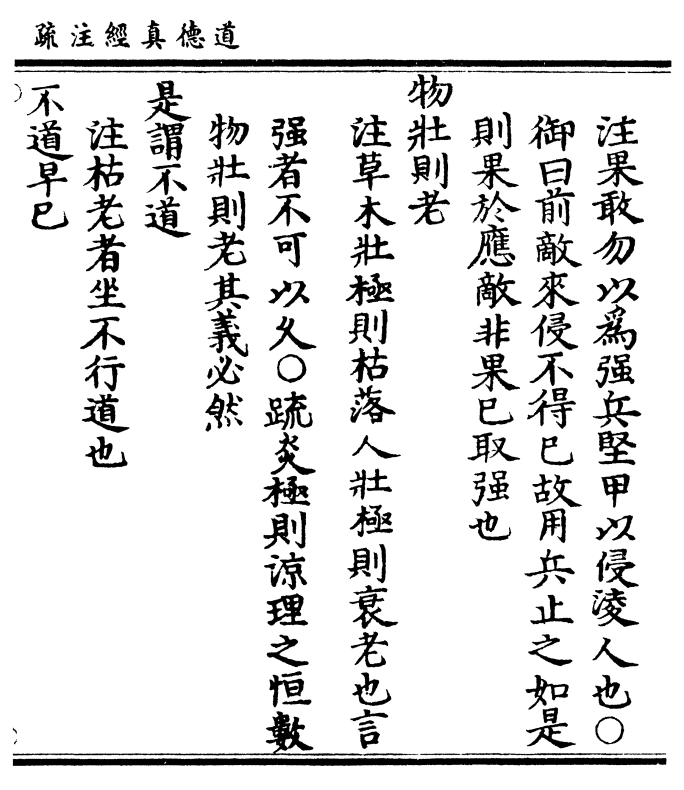 道德真經注疏
注果敢勿以爲强兵堅甲以侵淩人也○
御曰前敵來侵不得已故用兵止之如是
則果於應敵非果已取强也
物壯則老
注草木壯極則枯落人壯極則衰老也言
强者不可以久○疏炎極則涼理之恒數
物壯則老其義必然
是謂不道
注枯老者坐不行道也
不道早已